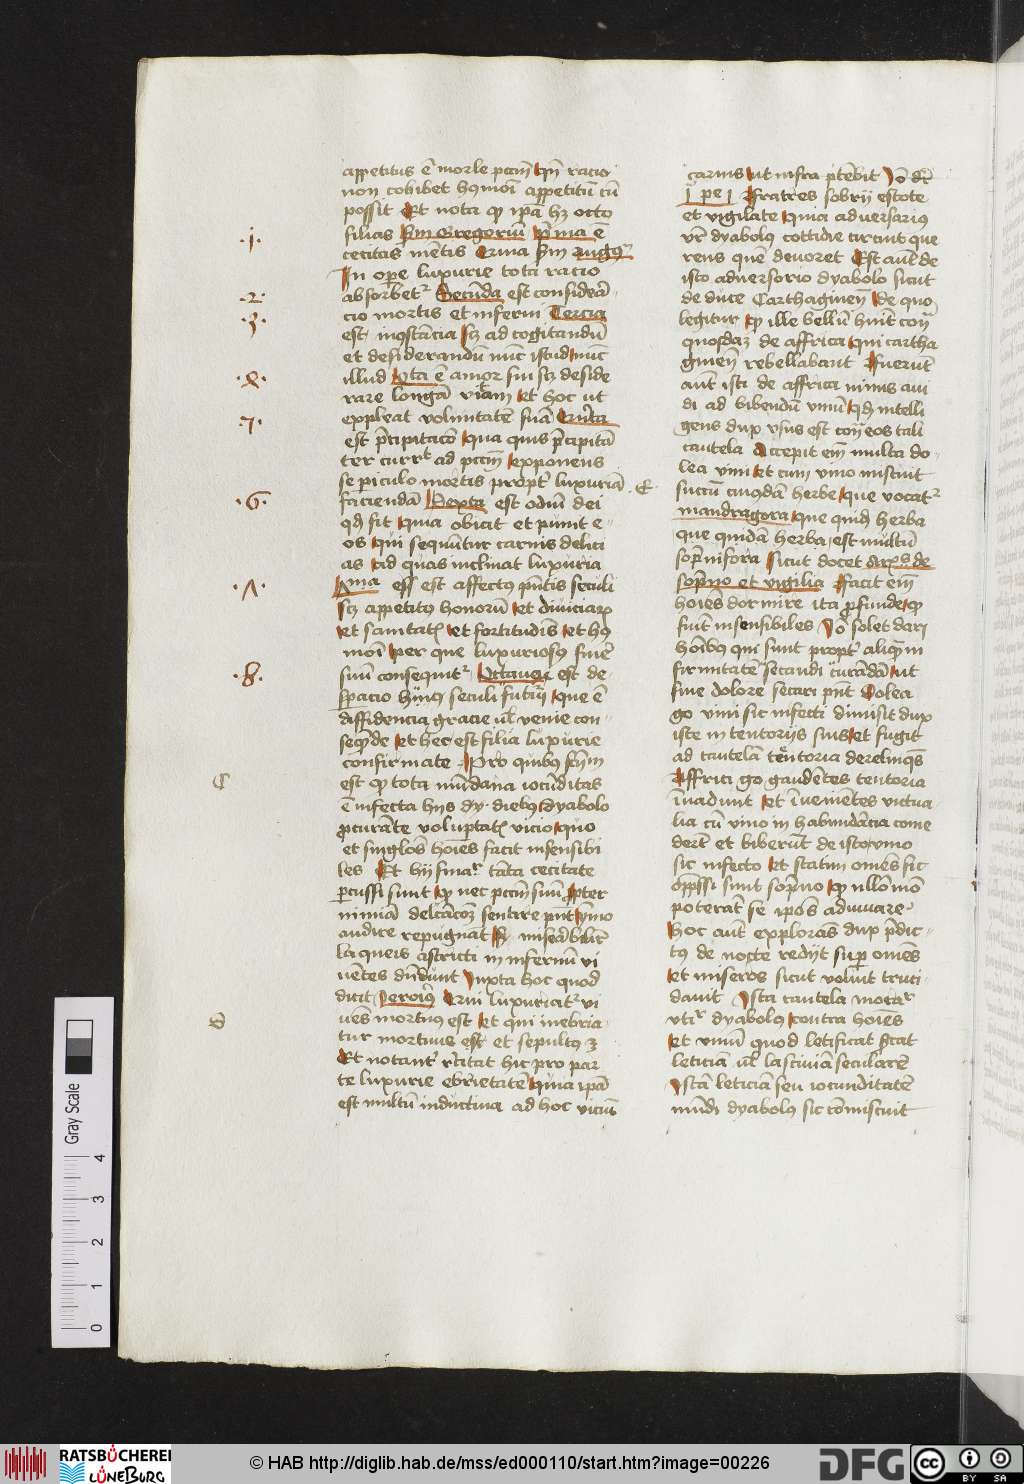 appetitus ē morle pccm̄ qn̄ racio
non cohibet hꝰmoi appetitū cū
possit Et nota qͦ ipā hꝫ octo
filias Scdm Gregoriū prima ē
·1·
cecitas mētis Quia scdm augꝰ
In opere luxurie tota racio
absorbetᷣ Secūda est consideā
·2·
cio mortis et inferni Tercia
·3·
est inɔstācia scꝫ ad cogitandū
et desiderandū nūc istud nūc
illud Qͣta ē amor sui scꝫ deside
·4·
rare longā vitam et hoc ut
expleat voluntatē suā Quīta
·5·
est p̄cipitacō qua quis p̄cipitā
ter currͭ ad pccm̄ exponens
se periculo mortis propt̕ luxuriā
faciendā Sexta est odiū dei
·6·
qd̄ fit quia obicit et punit e
os qui sequūtur carnis delici
as ad quas inclinat luxuria
est affectꝰ pn̄tis seculi
·7·
scꝫ appetitꝰ honorū et diviciaꝝ
et sanitatꝭ et fortitudīs et hꝰ
moi per que luxuriosꝰ finē
suū consequitᷣ Octava est de
·8·
speracio huiꝰ seculi futuri que ē
diffidencia gracie ul̄ venie con
seqn̄de et hec est filia luxurie
confirmate Pro quibꝰ scm̄
est qͦ tota mūdana iocūditas
C
ē infecta hijs dy dyabolo
procurāte voluptatꝭ vicio quo
et singlos hoīes facit insensibi
les Et hij tāta cecitate
percussi sunt qͦ nec pccm̄ suū propter
nimiā delcacōꝫ sentire pn̄t ymo
audire repugnāt Sꝫ miserabiliter
laqueis astricti in infernū vi
ventes Juxta hoc quod
dicit Jeroīꝰ Qui luxuriatᷣ vi
D
vēs mortuus est et qui inebria
tur mortuus est et sepultꝰ
Et notant̕ hic pro par
te luxurie ebrietatē quia ipā
est multū inductiva ad hoc viciū
carnis ut infra ptēbit dr̄
1 pe 1 Fratres sobrij estote
et vigilate quia adversariꝰ
vr̄ dyabolꝰ cottidie circuit que
rens quē devoret Est aut̄ de
isto adversorio dyabolo sicut
de duce Carthaginen̄ de quo
legitur qͦ ille bellū hūit con̄
quosdaꝫ de affrica qui cartha
ginen̄ rebellabant Fuerūt
aūt isti de affrica nimis avi
di ad bibendū vinū qd̄ intelli
gens dux usus est con̄ eos tali
cautela Accepit em̄ multa do
lea vini et cum vino miscuit
succū cuiꝰdā herbe que vocatᷣ
E
mandragora que quid̄ herba
que quidā herba est multū
sopnifora sicut docet de
sopno et vigilia Facit em̄
hoīes dormire ita profunde qͦ
fiūt insensibiles solet dari
hoībꝰ qui sunt propt̕ aliqm̄ in
firmitatē secandi ut
sine dolore secari pn̄t Dolea
go vini sic infecti dimisit dux
iste in tentorijs suis et fugit
ad cautelā tētoria derelinqꝰ
Affrici go gaudētes tentoria
īvadunt et īvenientes victua
lia cū vino in habundācia come
derūt et biberūt de isto vino
sic infecto et statim omēs sic
opp̄ssi sunt sopno qͦ nullo mō
poterāt se ipos adiuvare
Hoc aūt explorās dux p̄dic
tꝰ de nocte redijt super omēs
et miseros sicut voluit truci
davit Ista cautela moraᷣ
utiᷣ dyabolꝰ contra hoīes
et vinū quod letificat
leticiā ul̄ lasciviā secularē
Istā leticiā seu iocunditatē
mūdi dyabolꝰ sic cōmiscuit
Gray Scale
0 1 2 3 4
RATSBÜCHEREI
LÜNEBURG
© HAB http://diglib.hab.de/mss/ed000110/start.htm?image=00226
DFG
cc BY SA